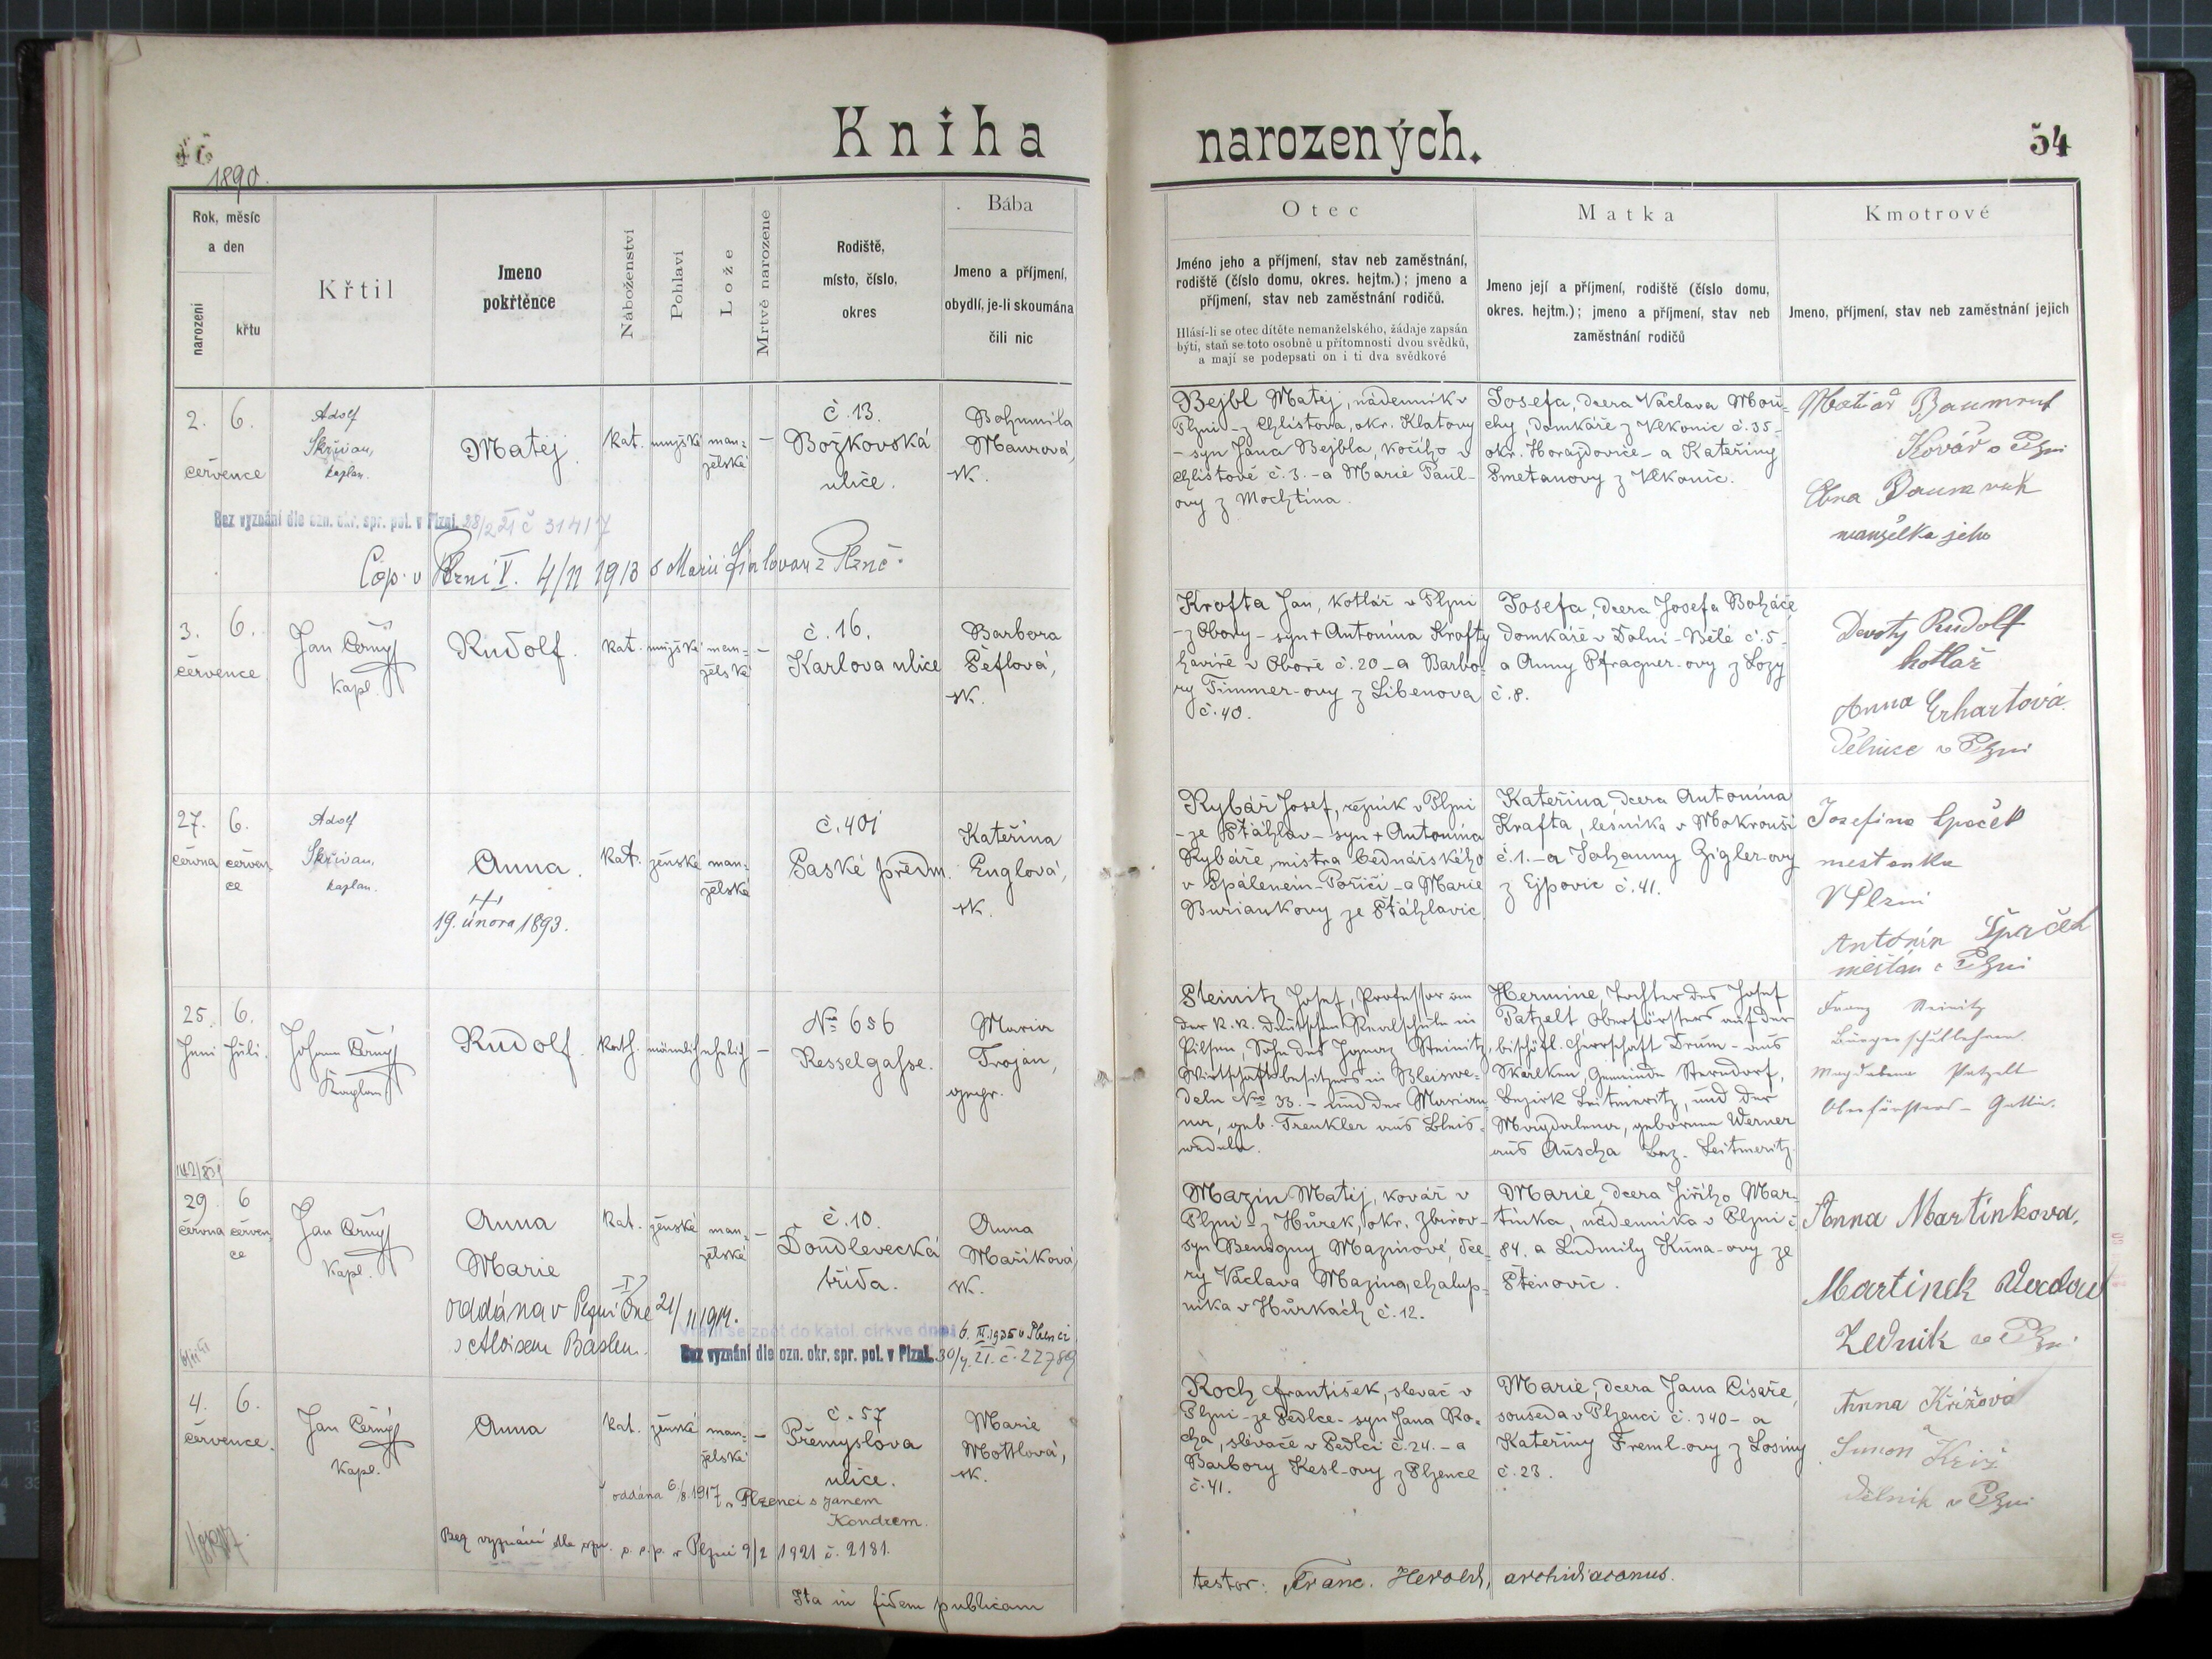 Kniha narozených.
54
1890.
Rok, měsíc
a den
narození
křtu
Křtil
Jmeno
pokřtěnce
Náboženství
Pohlaví
Lože
Mrtvě narozené
Rodiště,
místo, číslo,
okres
Bába
Jmeno a příjmení,
obydlí, je-li skoumána
čili nic
Otec
Jméno jeho a příjmení, stav neb zaměstnání,
rodiště (číslo domu, okres. hejtm.); jmeno a
příjmení, stav neb zaměstnání rodičů.
Hlásí-li se otec dítěte nemanželského, žádaje zapsán
býti, staň se toto osobně u přítomnosti dvou svědků,
a mají se podepsati on i ti dva svědkové
Matka
Jmeno její a příjmení, rodiště (číslo domu,
okres. hejtm.); jmeno a příjmení, stav neb
zaměstnání rodičů
Kmotrové
Jmeno, příjmení, stav neb zaměstnání jejich
2. 6.
července
Adolf
Skřivan,
kaplan.
Matěj.
kat. mužské man-
želské
–
č. 13.
Božkovská
ulice.
Bohumila
Maurová,
zk.
Bejbl Matěj, nádenník v
Plzni – z Chlistova, okr. Klatovy
– syn Jana Bejbla, kočího v
Chlistově č. 3. – a Marie Paul-
ovy z Mochtína.
Josefa, dcera Václava Mou-
chy, domkáře z Vlkonic č. 35 –
okr. Horažďovice – a Kateřiny
Smetanovy z Vlkonic.
Baumruk
Kovář v Plzni
Baumruk
manželka jeho
Bez vyznání dle ozn. okr. spr. pol. v Plzni 28/2 21 č 31417
Cop. v Plzni I. 4/11 1913 s Marií
3. 6.
července
Jan Černý
kapl.
Rudolf.
kat. mužské man-
želské
–
č. 16.
Karlova ulice
Barbora
Šeflová,
zk.
Krofta Jan, kotlář v Plzni
– z Obory – syn + Antonína Krofty
havíře v Oboře č. 20 – a Barbo-
ry Timmer-ovy z Libenova
č. 40.
Josefa, dcera Josefa Boháče,
domkáře v Dolní-Bělé č. 5 –
a Anny Pfragner-ovy z Lozy
č. 8.
Devotý Rudolf
kotlář
Anna Erhartová
Dělnice v Plzni
27. 6.
června červen-
ce
Adolf
Skřivan,
kaplan.
Anna.
+
19. února 1893.
kat. ženské man-
želské
č. 401
Saské předm.
Kateřina
Englová,
zk.
Rybář Josef, řezník v Plzni
– ze Šťáhlav – syn + Antonína
Rybáře, mistra bednářského
v Spáleném-Poříčí – a Marie
Buriankovy ze Šťáhlavic.
Kateřina, dcera Antonína
Krafta, lesníka v Mokrouši
č. 1. – a Johanny Gigler-ovy
z Ejpovic č. 41.
Josefina Špaček
mestanka
V Plzni
Antonín Špaček
měšťan v Plzni
25. 6.
Juni Juli.
Johann Černý
Kaplan
Rudolf.
kath. männlich ehelich
–
No 656
Resselgasse.
Maria
Trojan,
gepr.
Steinitz Josef, Professor an
der k. k. deutschen Realschule in
Pilsen, Sohn des Ignaz Steinitz,
Wirtschaftsbesitzers in Bleiswe-
deln No 33. – und der Marian-
na, geb. Trenkler aus Bleis-
wedeln.
Hermine, Tochter des Josef
Patzelt Oberförsters auf der
bischöfl. Herrschaft Drum – aus
Skalken, Gemeinde Sterndorf,
Bezirk Leitmeritz, und der
Magdalena, geborenen Werner
aus Auscha Bez. Leitmeritz.
Franz Steinitz
Bürgerschullehrer.
Magdalena Patzelt
Oberförsters-Gattin.
29. 6
června červen-
ce
Jan Černý
kapl.
Anna
Marie
kat. ženské man-
želské
–
č. 10.
Doudlevecká
třída.
Anna
Maříková,
zk.
Mazín Matěj, kovář v
Plzni – z Hůrek, okr. Zbirov –
syn Benigny Mazínové, dce-
ry Václava Mazína, chalup-
níka v Hůrkách č. 12.
Marie, dcera Jiřího Mar-
tínka, nádenníka v Plzni č.
84. a Ludmily Kůna-ovy ze
Stěnovic.
Anna Martinkova,
Martinek
Zedník v Plzni
oddána v Plzni I dne 21/11 1914.
s Aloisem
Vrátil se zpět do katol. církve dne 6. III. 1925 v Plzenci
Bez vyznání dle ozn. okr. spr. pol. v Plzni. 30/4. 21. č. 22789
4. 6.
července.
Jan Černý
kapl.
Anna
kat. ženské man-
želské
–
č. 57
Přemyslova
ulice.
Marie
Mottlová,
zk.
Roch František, slevač v
Plzni – ze Sedlce – syn Jana Ro-
cha, slévače v Sedlci č. 24. – a
Barbory Kesl-ovy z Plzence
č. 41.
Marie, dcera Jana Císaře,
souseda v Plzenci č. 340 – a
Kateřiny Freml-ovy z Losiny
č. 23.
Anna Křížová
a
Simon Kříž
dělník v Plzni
oddána 6/8. 1917 v Plzenci s Janem
Kondrem.
Bez vyznání dle ozn. o. s. p. v Plzni 9/2 1921 č. 2181.
Ita in fidem publicam
testor: Franc. Herold, archidiaconus.